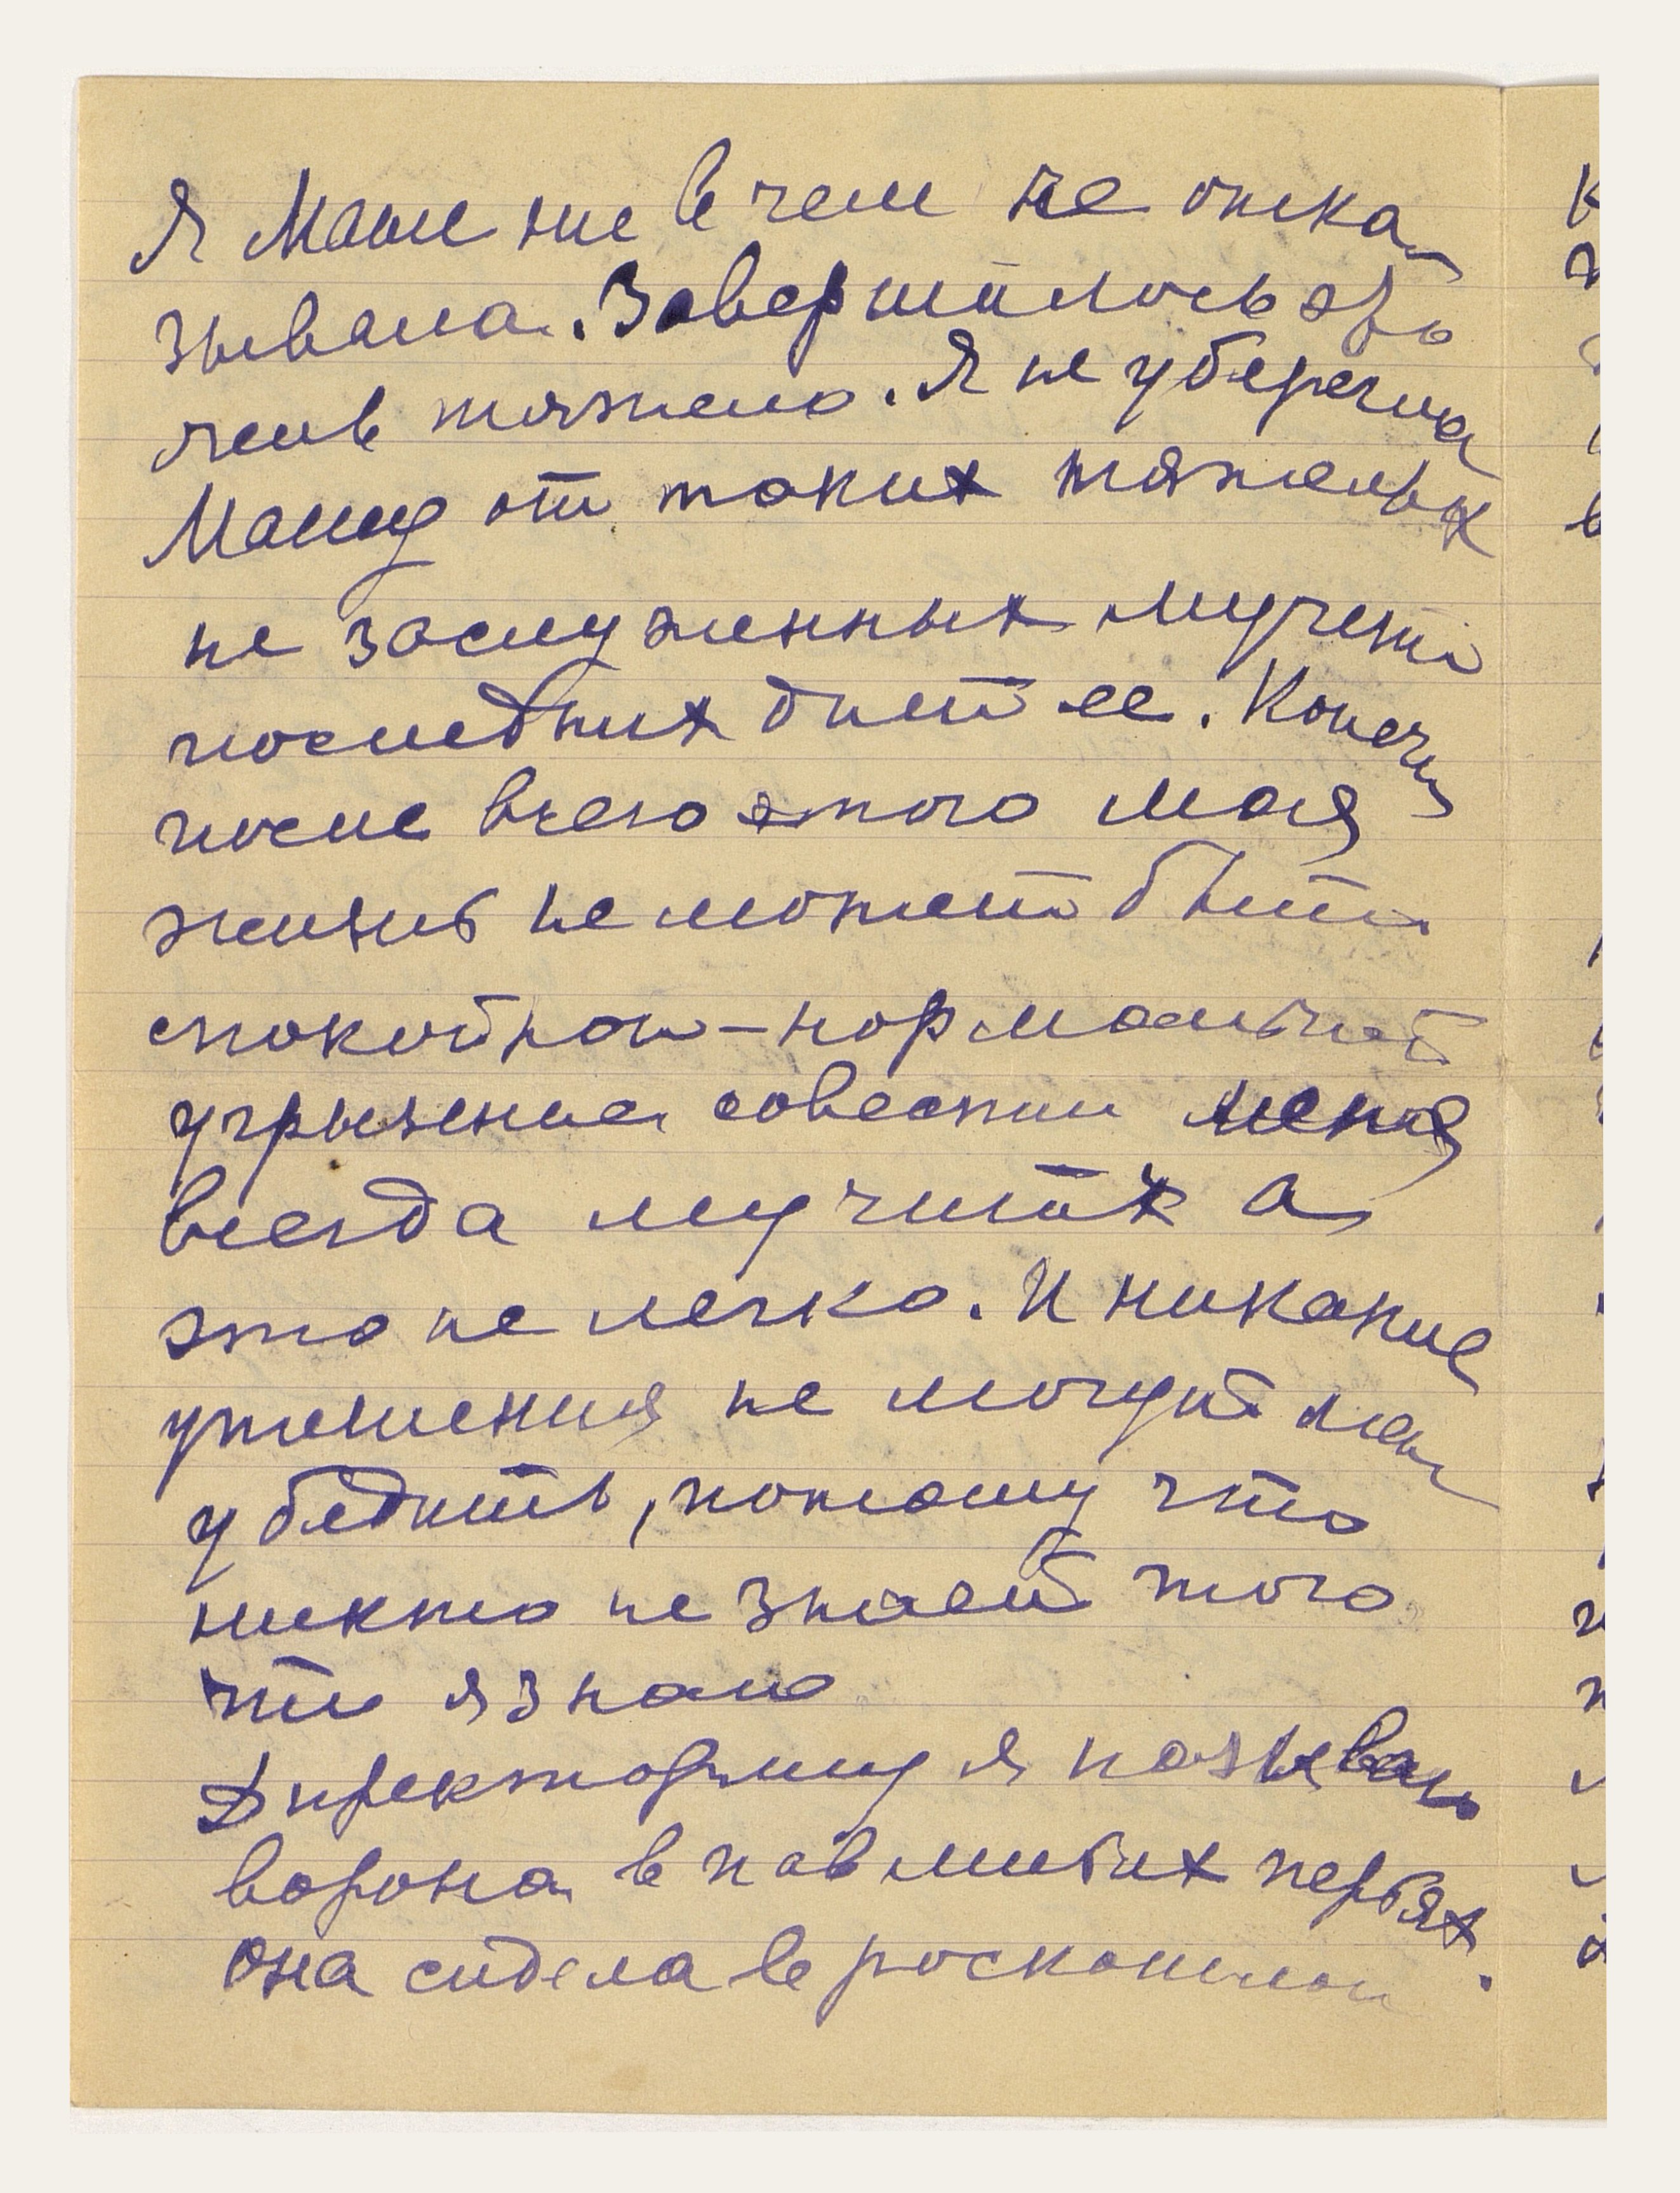 Я Маше ни в чем не отка
зывала. Завершилось это
очень тяжело. Я не уберегла
Машу от таких тяжелых
не заслуженных мучений
последних дней ее. Конечно
после всего этого моя
жизнь не может быть
спокойной – нормальной
угрызение совести меня
всегда мучит а
это не легко. И никакие
утешения не могут меня
убедить, потому что
никто не знает того
что я знаю
Директоршу я называю
ворона в павлиных перьях.
Она сидела в роскошном